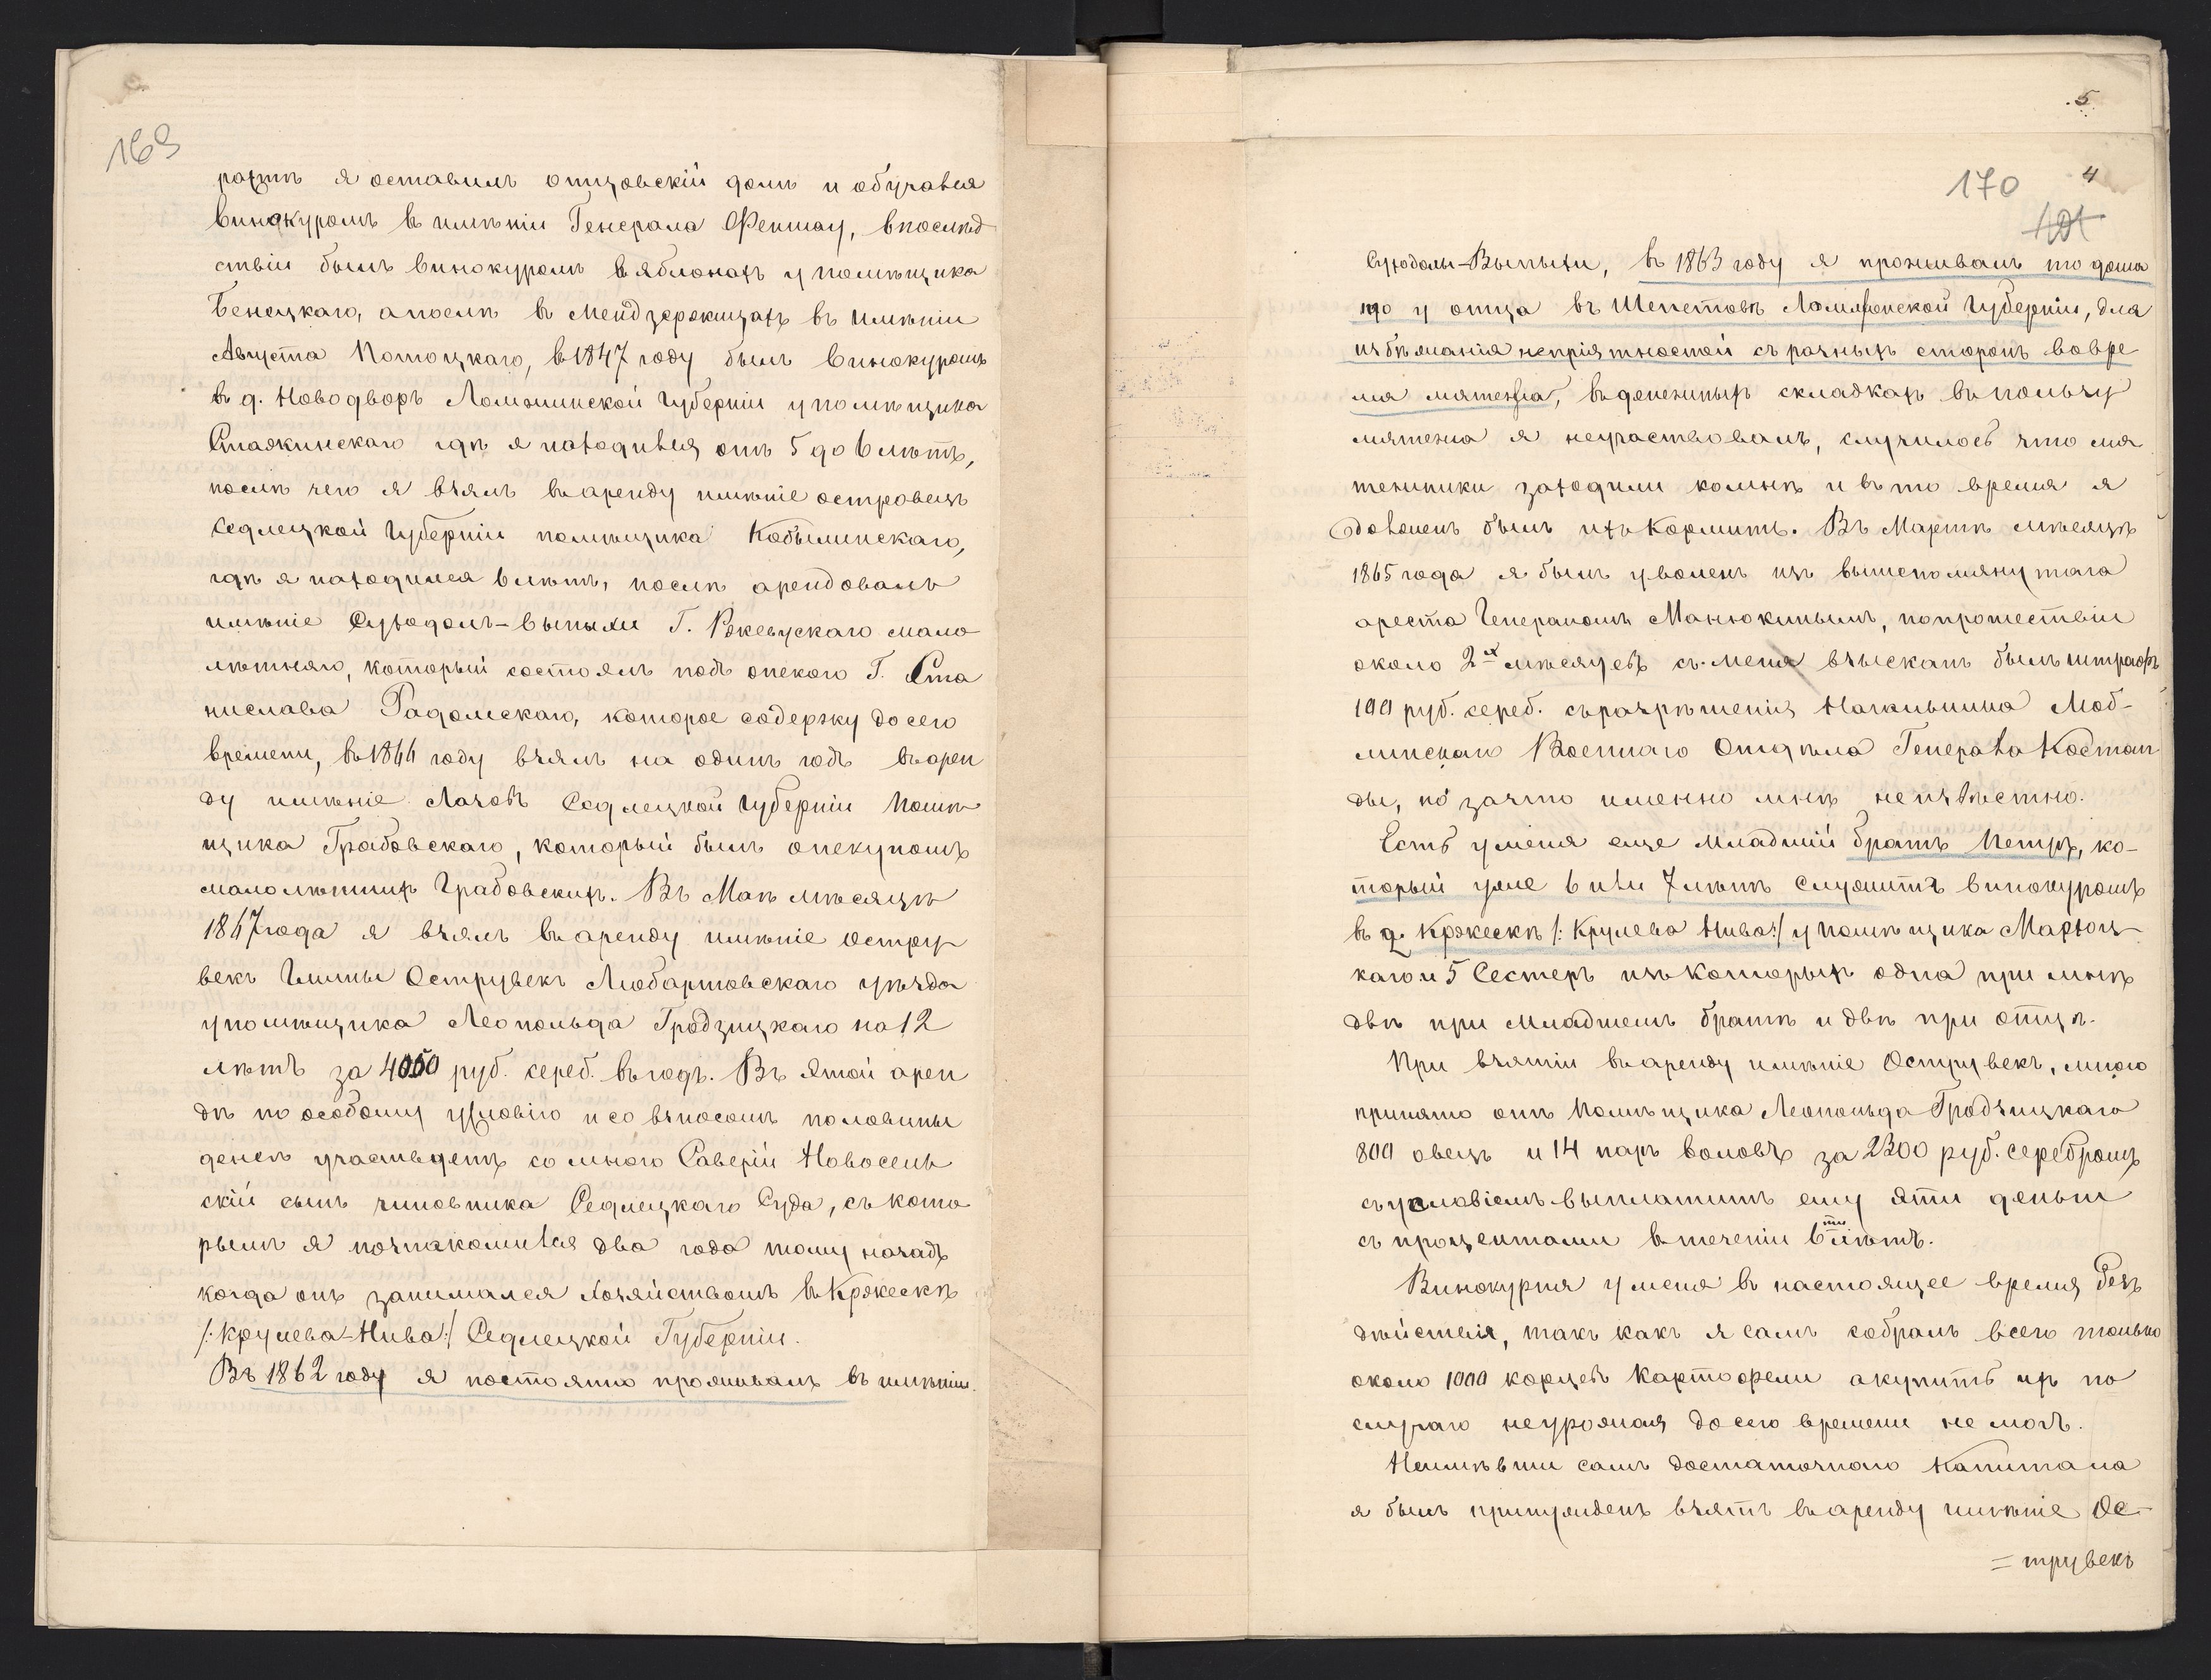 169
я оставилъ отцовскій домъ и обучался
винокуромъ в имѣніи Генерала Феншау, впослѣд
ствіи былъ винокуромъ в яблонахъ у помѣщика
Бенецкаго, апослѣ в Мендзержицахъ въ имѣніи
Августа Потоцкаго, в 1847 году былъ винокуромъ
в д. Новодворъ Ломжинской губерніи у помѣщика
гдѣ я находился отъ 5 до 6 лѣтъ,
послѣ чего я взялъ варенду имѣніе островецъ
Седлецкой губерніи помѣщика Кобылинскаго,
гдѣ я находился 6 лѣтъ, послѣ арендовалъ
имѣніе Суходолъ-выпыхи Г. Ржевускаго мало
лѣтняго, который состоялъ подъ опекою Г. Ста
нислава Радомскаго, которое содержу до сего
времени, в 1866 году взялъ на одинъ годъ варен
ду имѣніе Лазовъ Седлецкой губерніи помѣ
щика Грабовскаго, который былъ опекуномъ
малолѣтнихъ Грабовскихъ. Въ Маѣ мѣсяцѣ
1867 года я взялъ варенду имѣніе Остру
векъ Гмины Острувекъ Любартовскаго уѣзда
упомѣщика Леопольда Гродзицкаго на 12
лѣтъ за 4050 руб. сереб. въ годъ. Въ этой арен
дѣ по особому условію и со взносомъ половины
денегъ участвуетъ со мною Саверій Новосель
скій сынъ чиновника Седлецкаго Суда, съ кото
рымъ я познакомился два года тому назадъ
когда онъ занимался хозяйствомъ в Кржескѣ
/:Крулева-Нива:/ Седлецкой Губерніи.
Въ 1862 году я постоянно проживалъ въ имѣніи
5
4
170
Суходолы-Выпыхи, в 1863 году я проживалъ то дома
то у отца въ Шепетовѣ Ломжинской губерніи, для
избѣжанія непріятностей съ разныхъ сторонъ вовре
мя мятежа, въ денежныхъ складкахъ въ пользу
мятежа я неучаствовалъ, случилось что мя
тежники заходили комнѣ и въ то время я
долженъ былъ ихъ кормить. Въ Мартѣ мѣсяцѣ
1865 года я былъ уволенъ изъ вышепомянутаго
ареста Генераломъ Манюкинымъ, попрошествіи
около 2х мѣсяцевъ съ меня взысканъ былъ штрафъ
100 руб. сереб. съ разрѣшенія Начальника Люб-
линскаго Военнаго Отдѣла Генерала Костан
ды, но зачто именно мнѣ неизвѣстно.
Есть уменя еще младшій братъ Петръ, ко-
торый уже 6 или 7 лѣтъ служитъ винокуромъ
въ д. Кржескѣ /:Крулева Нива:/ у помѣщика
каго и 5 Сестеръ изъ которыхъ одна при мнѣ
двѣ при младшемъ братѣ и двѣ при отцѣ.
При взятіи варенду имѣніе Острувекъ, мною
принято отъ помѣщика Леопольда Гродзицкаго
800 овецъ и 14 паръ воловъ за 2300 руб. серебромъ
съ условіемъ выплатить ему эти деньги
съ процентами в теченіи 6ти лѣтъ.
Винокурня у меня в настоящее время безъ
дѣйствія, такъ какъ я самъ собралъ всего только
около 1000 корцевъ картофели акупить ихъ по
случаю неурожая до сего времени не могъ.
Неимѣвши самъ достаточнаго капитала
я былъ принужденъ взять варенду имѣніе Ос-
=трувекъ